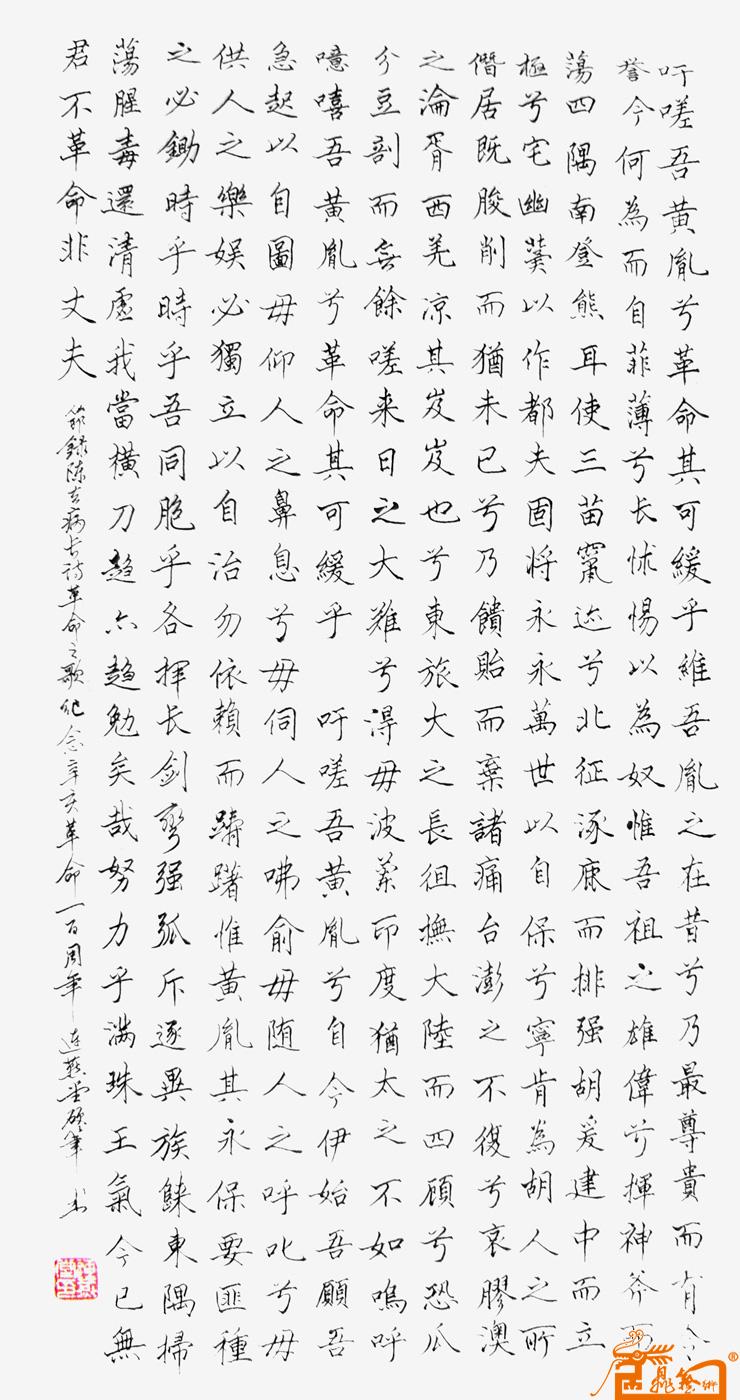 吁嗟吾黄胤兮革命其可緩乎維吾胤之在昔兮乃最尊貴而有令
誉今何為而自菲薄兮长怵惕以為奴惟吾祖之雄偉兮揮神斧而
蕩四隅南登熊耳使三苗竄迹兮北征涿鹿而排强胡爰建中而立
極兮宅幽冀以作都夫固将永永萬世以自保兮寧肯為胡人之所
僭居既朘削而猶未已兮乃饋貽而棄諸痛台澎之不復兮哀膠澳
之淪胥西羌凉其岌岌也兮東旅大之長徂撫大陸而四顧兮恐瓜
分豆剖而無餘嗟来日之大難兮得毋波蘭印度猶太之不如嗚呼
噫嘻吾黄胤兮革命其可緩乎 吁嗟吾黄胤兮自今伊始吾願吾
急起以自圖毋仰人之鼻息兮毋伺人之咈俞毋随人之呼叱兮毋
供人之樂娱必獨立以自治勿依賴而躊躇惟黄胤其永保要匪種
之必鋤時乎時乎吾同胞乎各揮长剑彎强弧斥逐異族餗東隅掃
蕩腥毒還清虚我當横刀趋亦趋勉矣哉努力乎满珠王氣今已無
君不革命非丈夫
節録陈去病长诗革命之歌纪念辛亥革命一百周年 连燕堂硬笔书